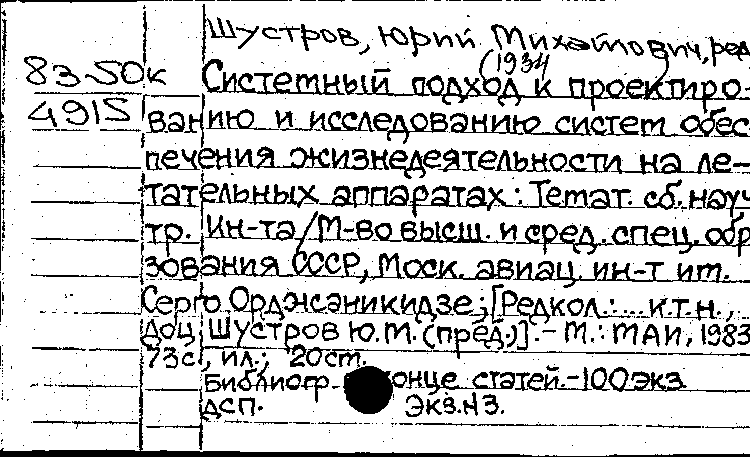 Шустров, Юрий Михайлович, ред
(1934
83-50к
4915
Системный подход к проектиро-
ванию и исследованию систем обес
печения жизнедеятельности на ле-
тательных аппаратах: Темат. сб. науч
тр. Ин-та/М-во высш. и сред. спец. обр
зования СССР, Моск. авиац. ин-т им.
Серго Орджоникидзе; [Редкол.: ... к.т.н.,
доц. Шустров Ю.М. (пред.)]. - М.: МАИ, 1983
73с., ил.; 20см.
Библиогр. конце статей. -100экз
ДСП. Экз.N3.